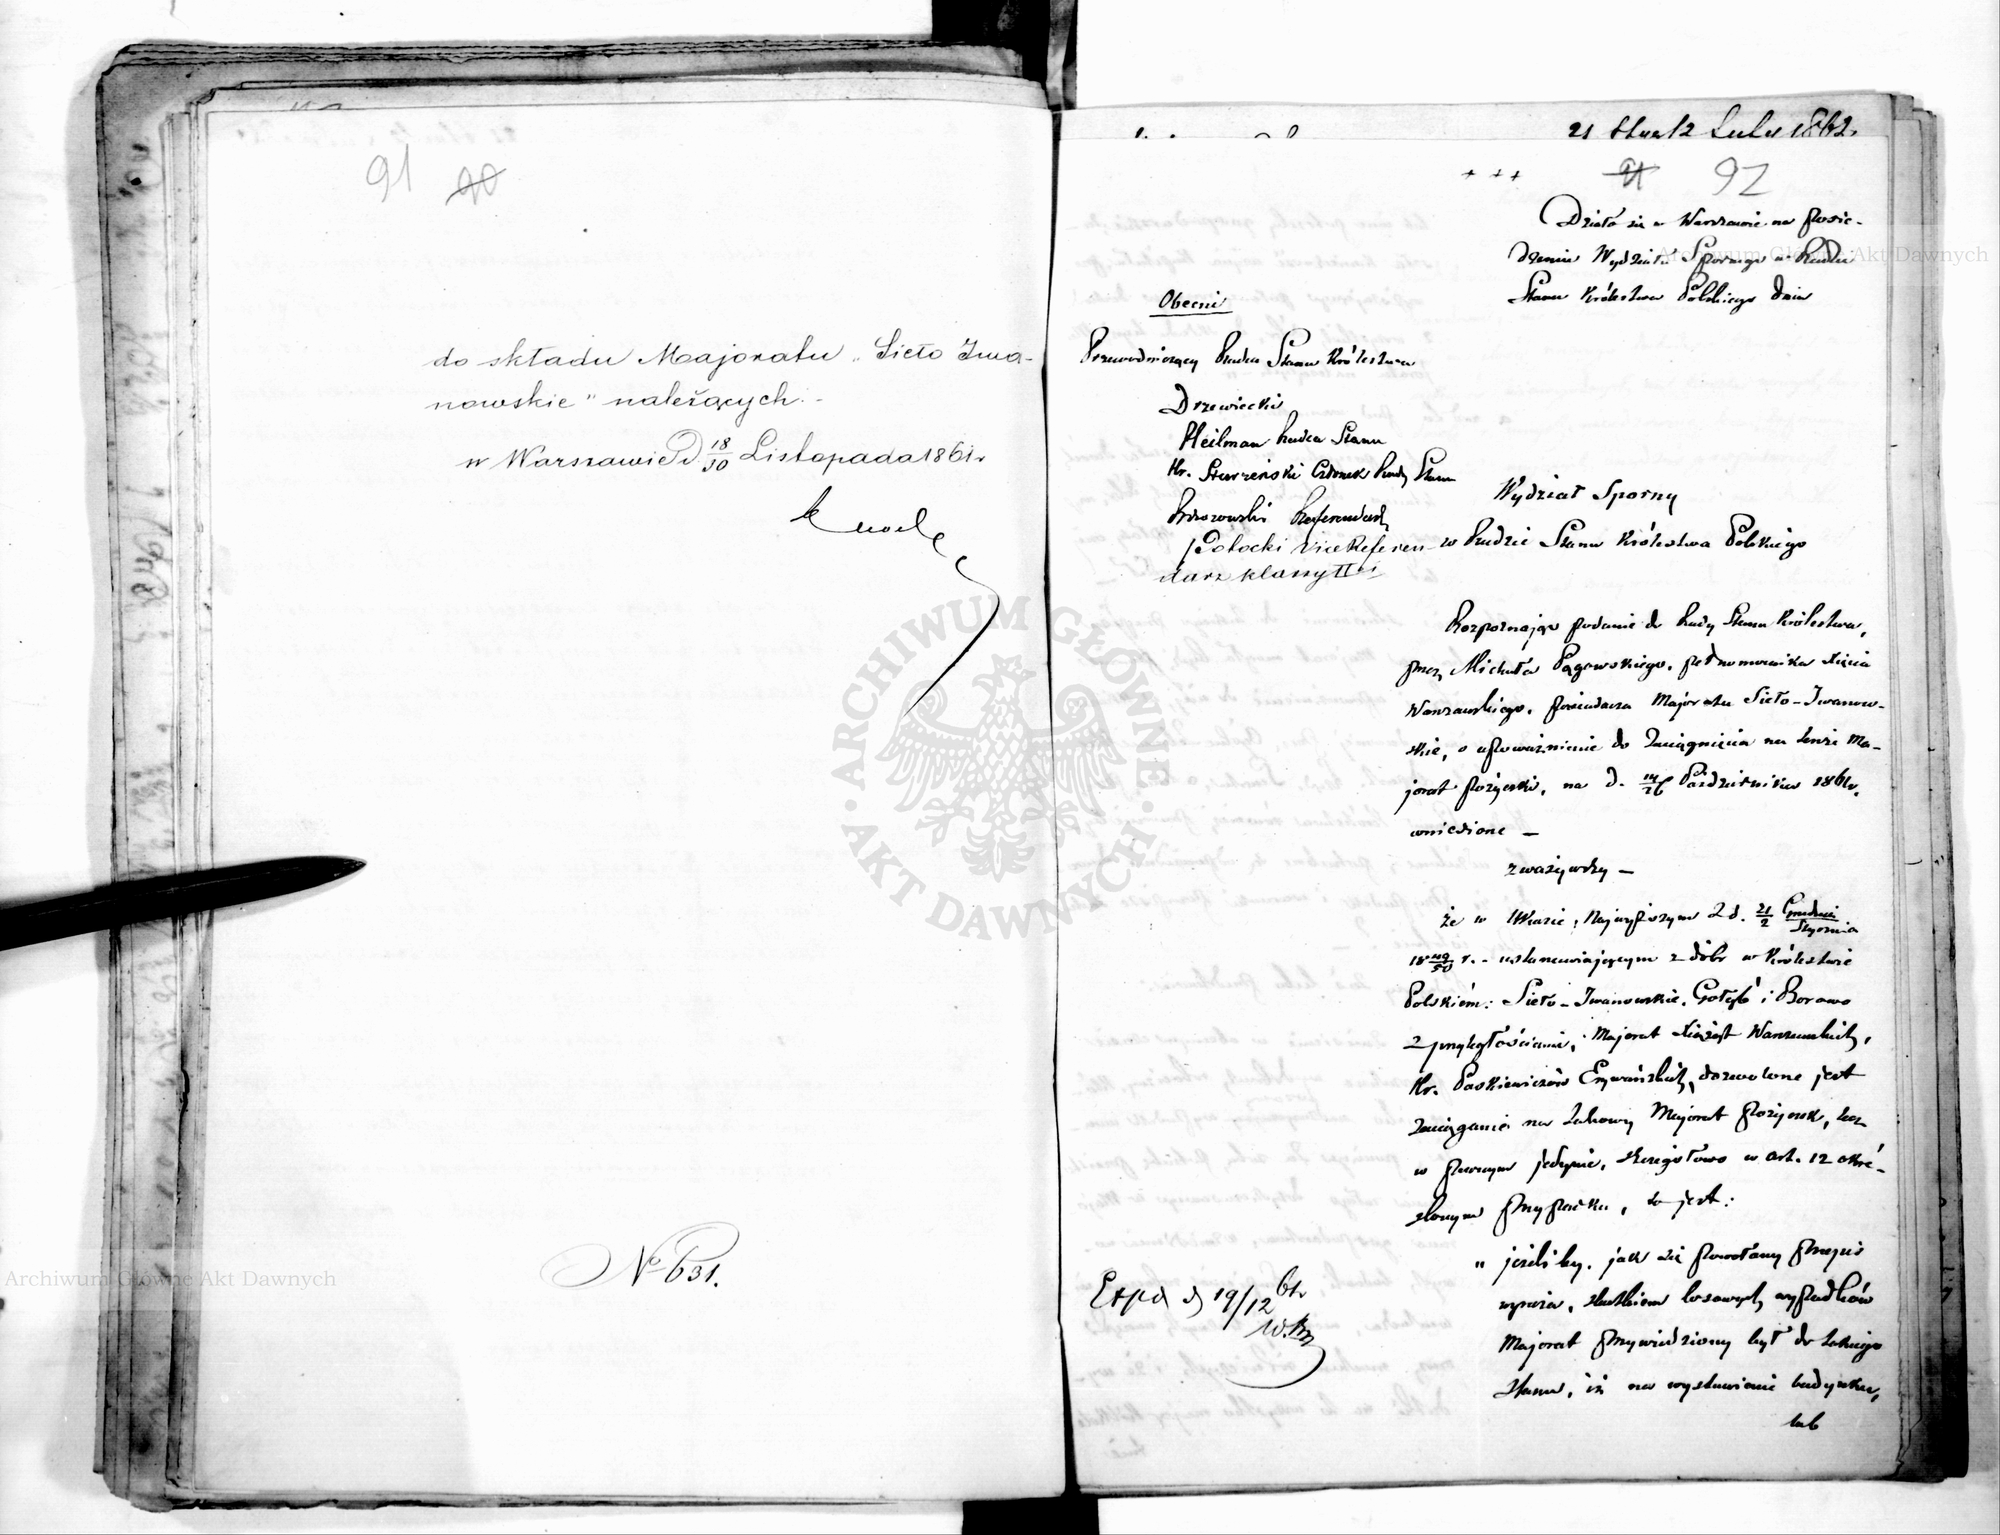 91 90
do składu Majoratu „Sieło Iwa-
nowskie" należących.-
w Warszawie d 18/30 Listopada 1861 r
№ 631.
21 2 1862.
+ + +
91 92
Działo się w Warszawie na posie-
dzeniu Wydziału Spornego w Radzie
Stanu Królestwa Polskiego dnia
Obecni
Przewodniczący Radca Stanu Królestwa
Drzewiecki
Heilman Radca Stanu
Hr. Starzeński Członek Rady Stanu
Brzozowski Referendarz
Potocki Vice Referen-
darz klassy II ej
Wydział Sporny
w Radzie Stanu Królestwa Polskiego
Rozpoznając podanie do Rady Stanu Królestwa,
przez Michała Pągowskiego, pełnomocnika Xięcia
Warszawskiego, posiadacza Majoratu Sieło-Iwanow-
skie, o upoważnienie do zaciągnięcia na tenże Ma-
jorat pożyczki, na d. 14/26 Października 1861 r.
wniesione —
zważywszy —
że w Ukazie Najwyższym z d. 21/2 Grudnia/Stycznia
18 49/50 r. - ustanawiającym z dóbr w Królestwie
Polskiém: Sieło-Iwanowskie, Gołąb i Borowo
z przyległościami, Majorat Xiążąt Warszawskich,
Hr. Paskiewiczów Erywańskich, dozwolone jest
zaciąganie na takowy Majorat pożyczek, lecz
w pewnym jedynie, szczegółowo w art. 12 okré-
slonym przypadku, to jest:
„ jeśliby, jak się powołany przepis
wyraża, skutkiem losowych wypadków
Majorat przywiedziony był do takiego
stanu, iż na wystawienie budynku,
lub
Exp d 19/12 61 r